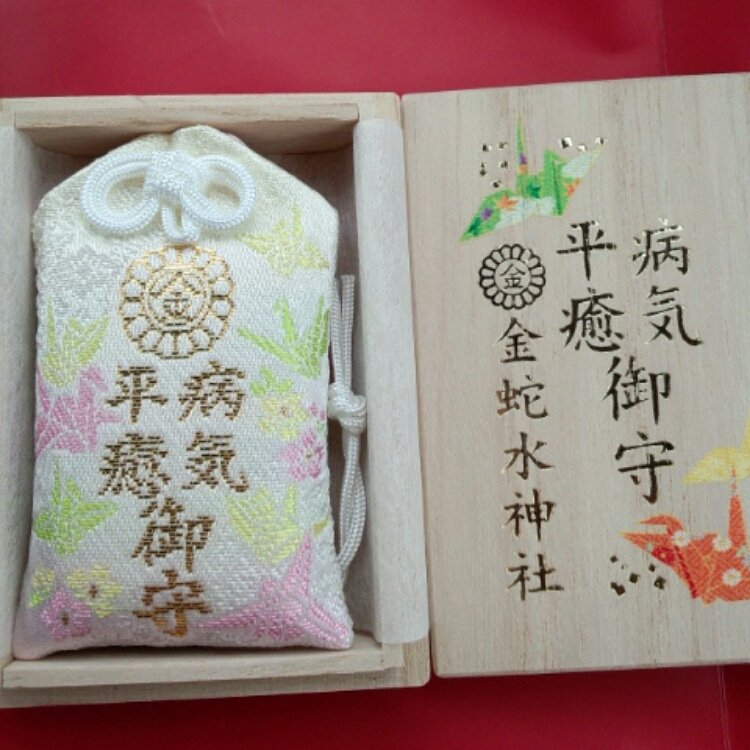 金
病気
平癒
御守
金
病気
平癒
御守
金蛇水神社